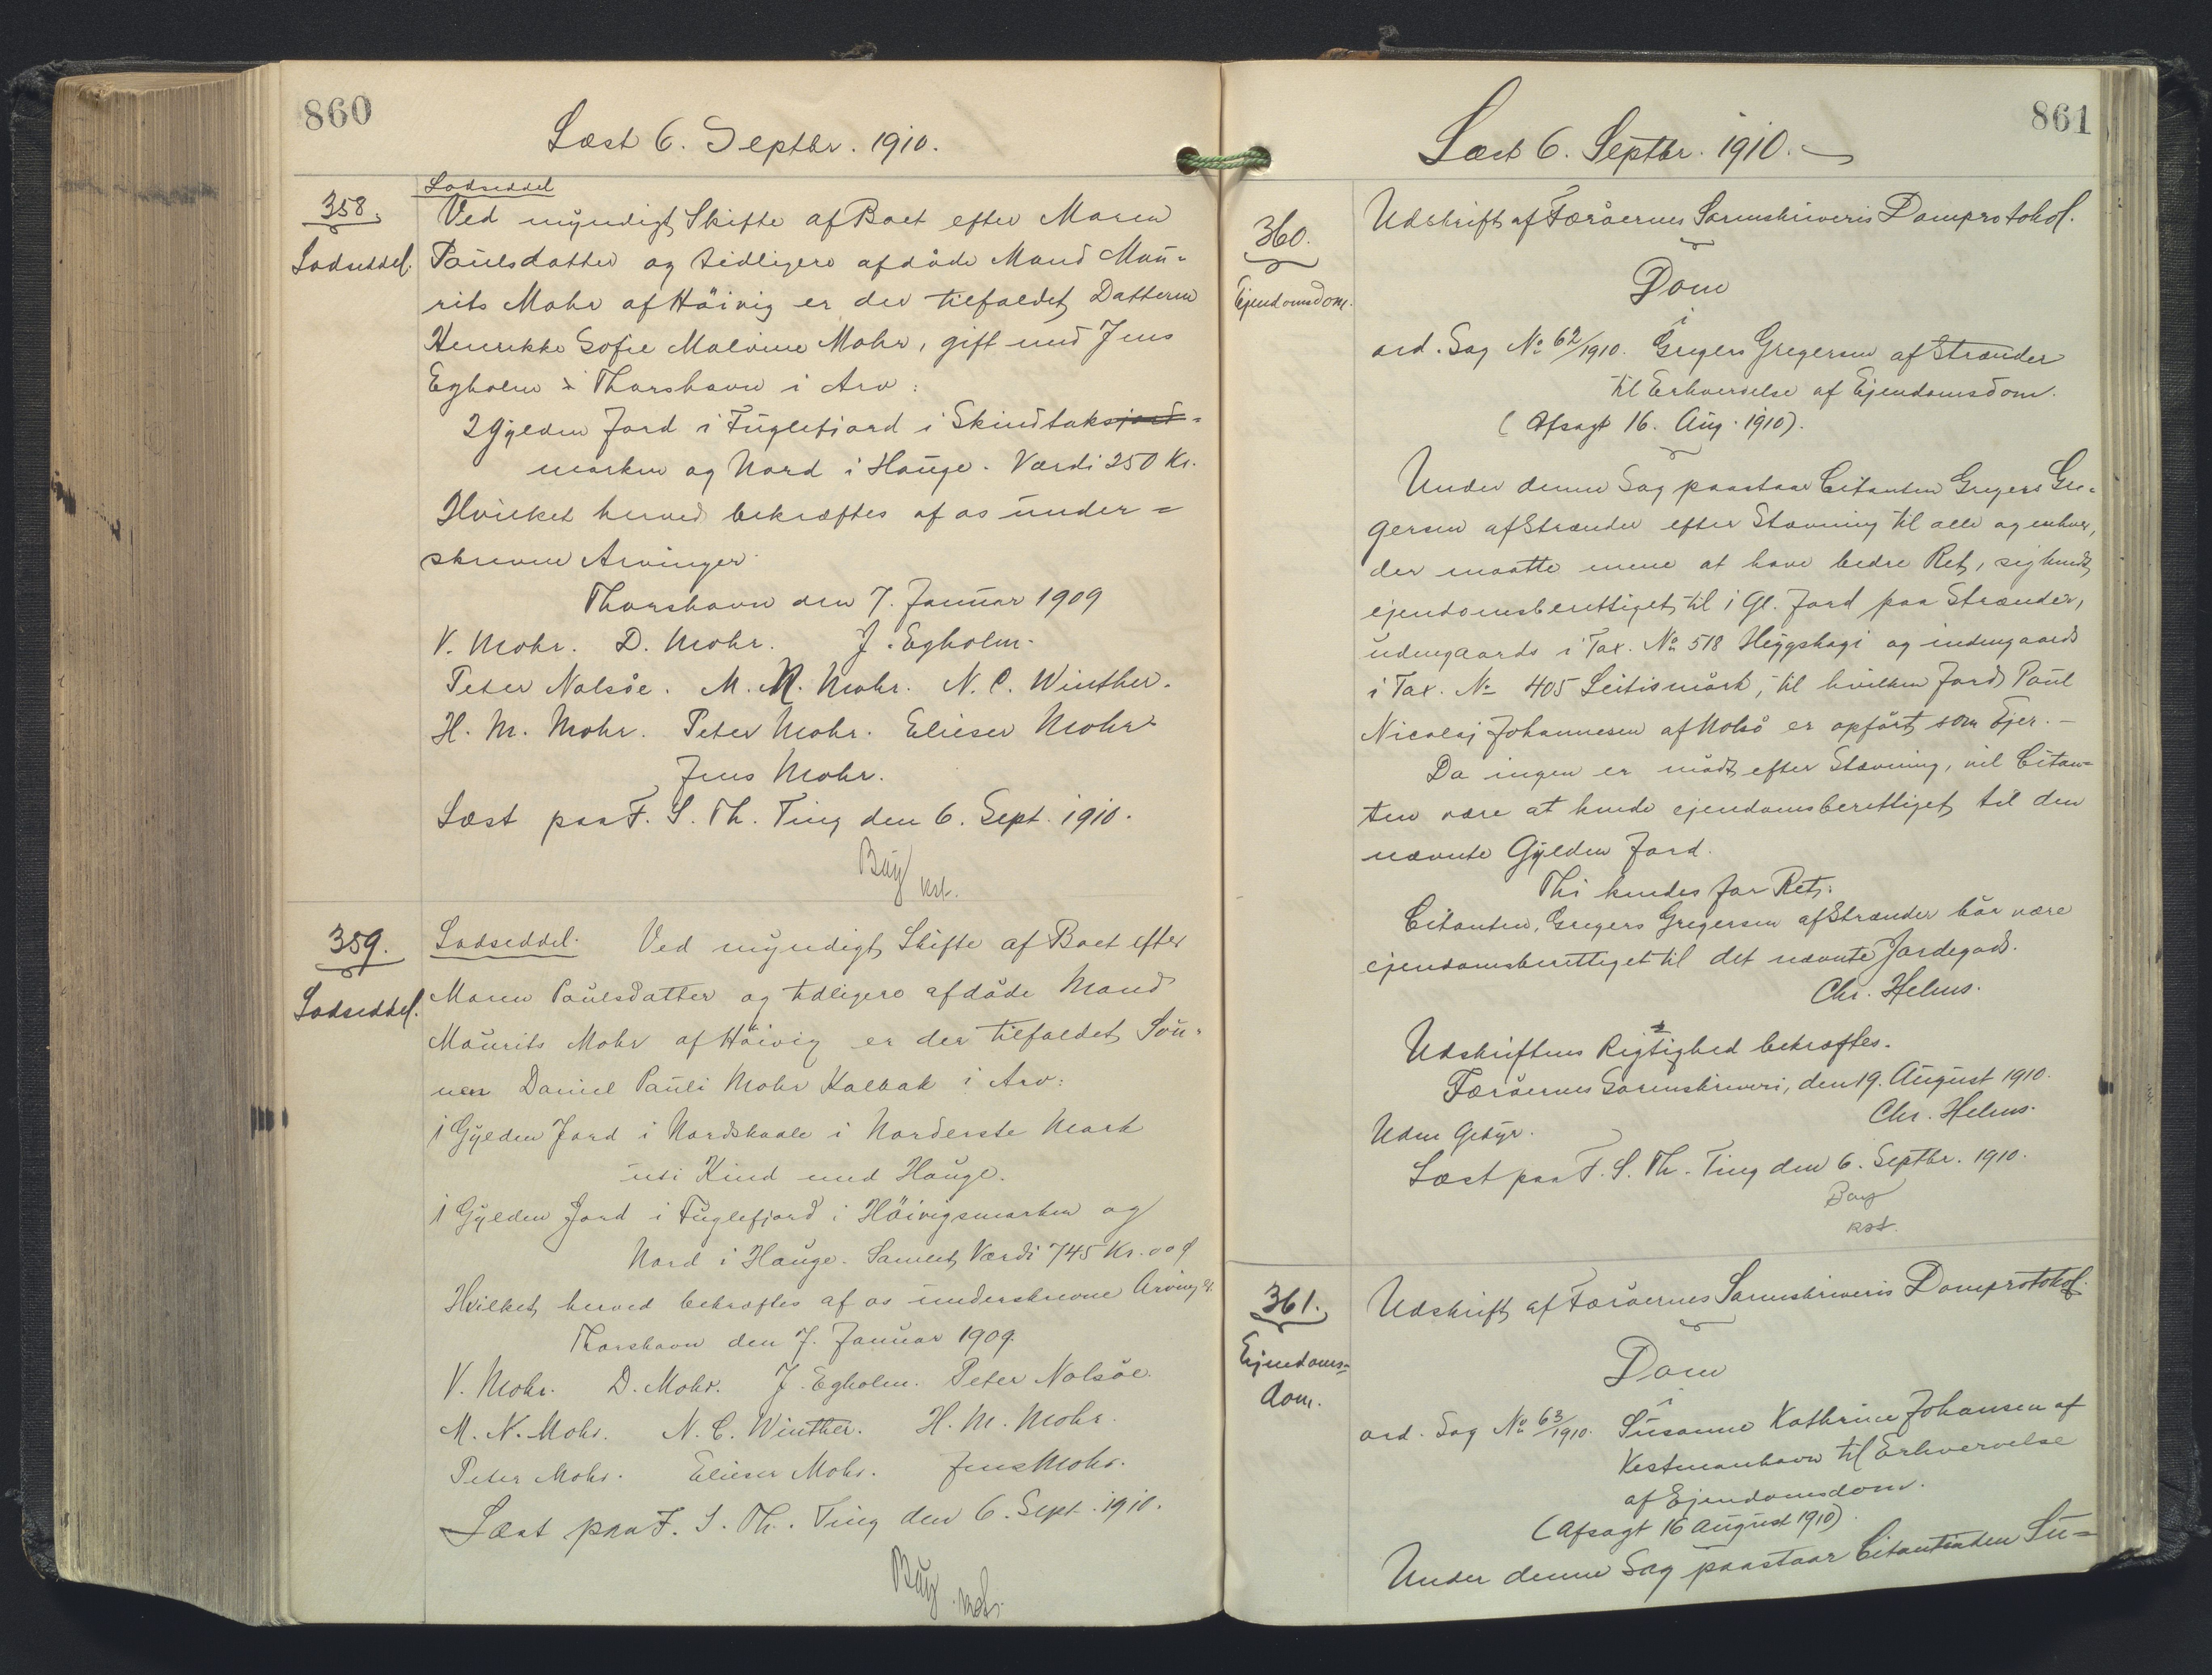 860
Læst 6. Septbr. 1910.
358.
Lodseddel.
Lodseddel
Ved myndigt Skifte af Boet efter Maren
Paulsdatter og tidligere afdøde Mand Mau-
rits Mohr af Höivig er der tilfaldet Datteren
Henrikke Sofie Malvine Mohr, gift med Jens
Egholm i Thorshavn i Arv:
2 Gylden Jord i Fuglefjord i Skindtoksjord-
marken og Nord i Hauge. Værdi 250 Kr.
Hvilket herved bekræftes af os under-
skrevne Arvinger.
Thorshavn den 7. Januar 1909
V. Mohr. D. Mohr. J. Egholm.
Peter Nolsöe. M. N. Mohr. N. C. Winther.
H. M. Mohr. Peter Mohr. Elieser Mohr
Jens Mohr.
Læst paa F. S. Th. Ting den 6. Sept. 1910.
Bay
kst.
359.
Lodseddel.
Lodseddel. Ved myndigt Skifte af Boet efter
Maren Paulsdatter og tidligere afdøde Mand
Maurits Mohr af Höivig er der tilfaldet Søn-
nen Daniel Pauli Mohr Kalbak i Arv:
1 Gylden Jord i Nordskaale i Norderste Mark
uti Kind med Hauge.
1 Gylden Jord i Fuglefjord i Höivigsmarken og
Nord i Hauge. Samlet Værdi 745 Kr. 00 Ø
Hvilket herved bekræftes af os underskrevne Arving er.
Thorshavn den 7. Januar 1909.
V. Mohr. D. Mohr. J. Egholm. Peter Nolsöe.
M. N. Mohr. N. C. Winther. H. M. Mohr.
Peter Mohr. Elieser Mohr. Jens Mohr.
Læst paa F. S. Th. Ting den 6. Sept. 1910.
Bay
kst.
861
Læst 6. Septbr. 1910.
360.
Ejendomsdom.
Udskrift af Færøernes Sorenskriveris Domprotokol.
Dom
i
ord. Sag No 62/1910. Gregers Gregersen af Strænder
til Erhvervelse af Ejendomsdom.
(Afsagt 16. Aug. 1910).
Under denne Sag paastaar Citanten Gregers Gre-
gersen af Strænder efter Stævning til alle og enhver,
der maatte mene at have bedre Ret, sig kendt
ejendomsberettiget til 1 Gl. Jord paa Strænder,
udengaards i Tax. No 518 Heyggshagi og indengaards
i Tax. No 405 Leitismörk, til hvilken Jord Paul
Nicolaj Johannesen af Nolsö er opført som Ejer. -
Da ingen er mødt efter Stævning, vil Citan-
ten være at kende ejendomsberettiget til den
nævnte Gylden Jord.
Thi kendes for Ret:
Citanten, Gregers Gregersen af Strænder bør være
ejendomsberettiget til det nævnte Jordegods.
Chr. Helms.
Udskriftens Rigtighed bekræftes.
Færøernes Sorenskriveri, den 19. August 1910.
Chr. Helms.
Uden Gebyr.
Læst paa F. S. Th. Ting den 6. Septbr. 1910.
Bay
kst.
361.
Ejendoms-
dom.
Udskrift af Færøernes Sorenskriveris Domprotokol.
Dom
i
ord. Sag No 63/1910. Susanne Kathrine Johansen af
Vestmanhavn til Erhvervelse
af Ejendomsdom.
(Afsagt 16 August 1910).
Under denne Sag paastaar Citantinden Su-